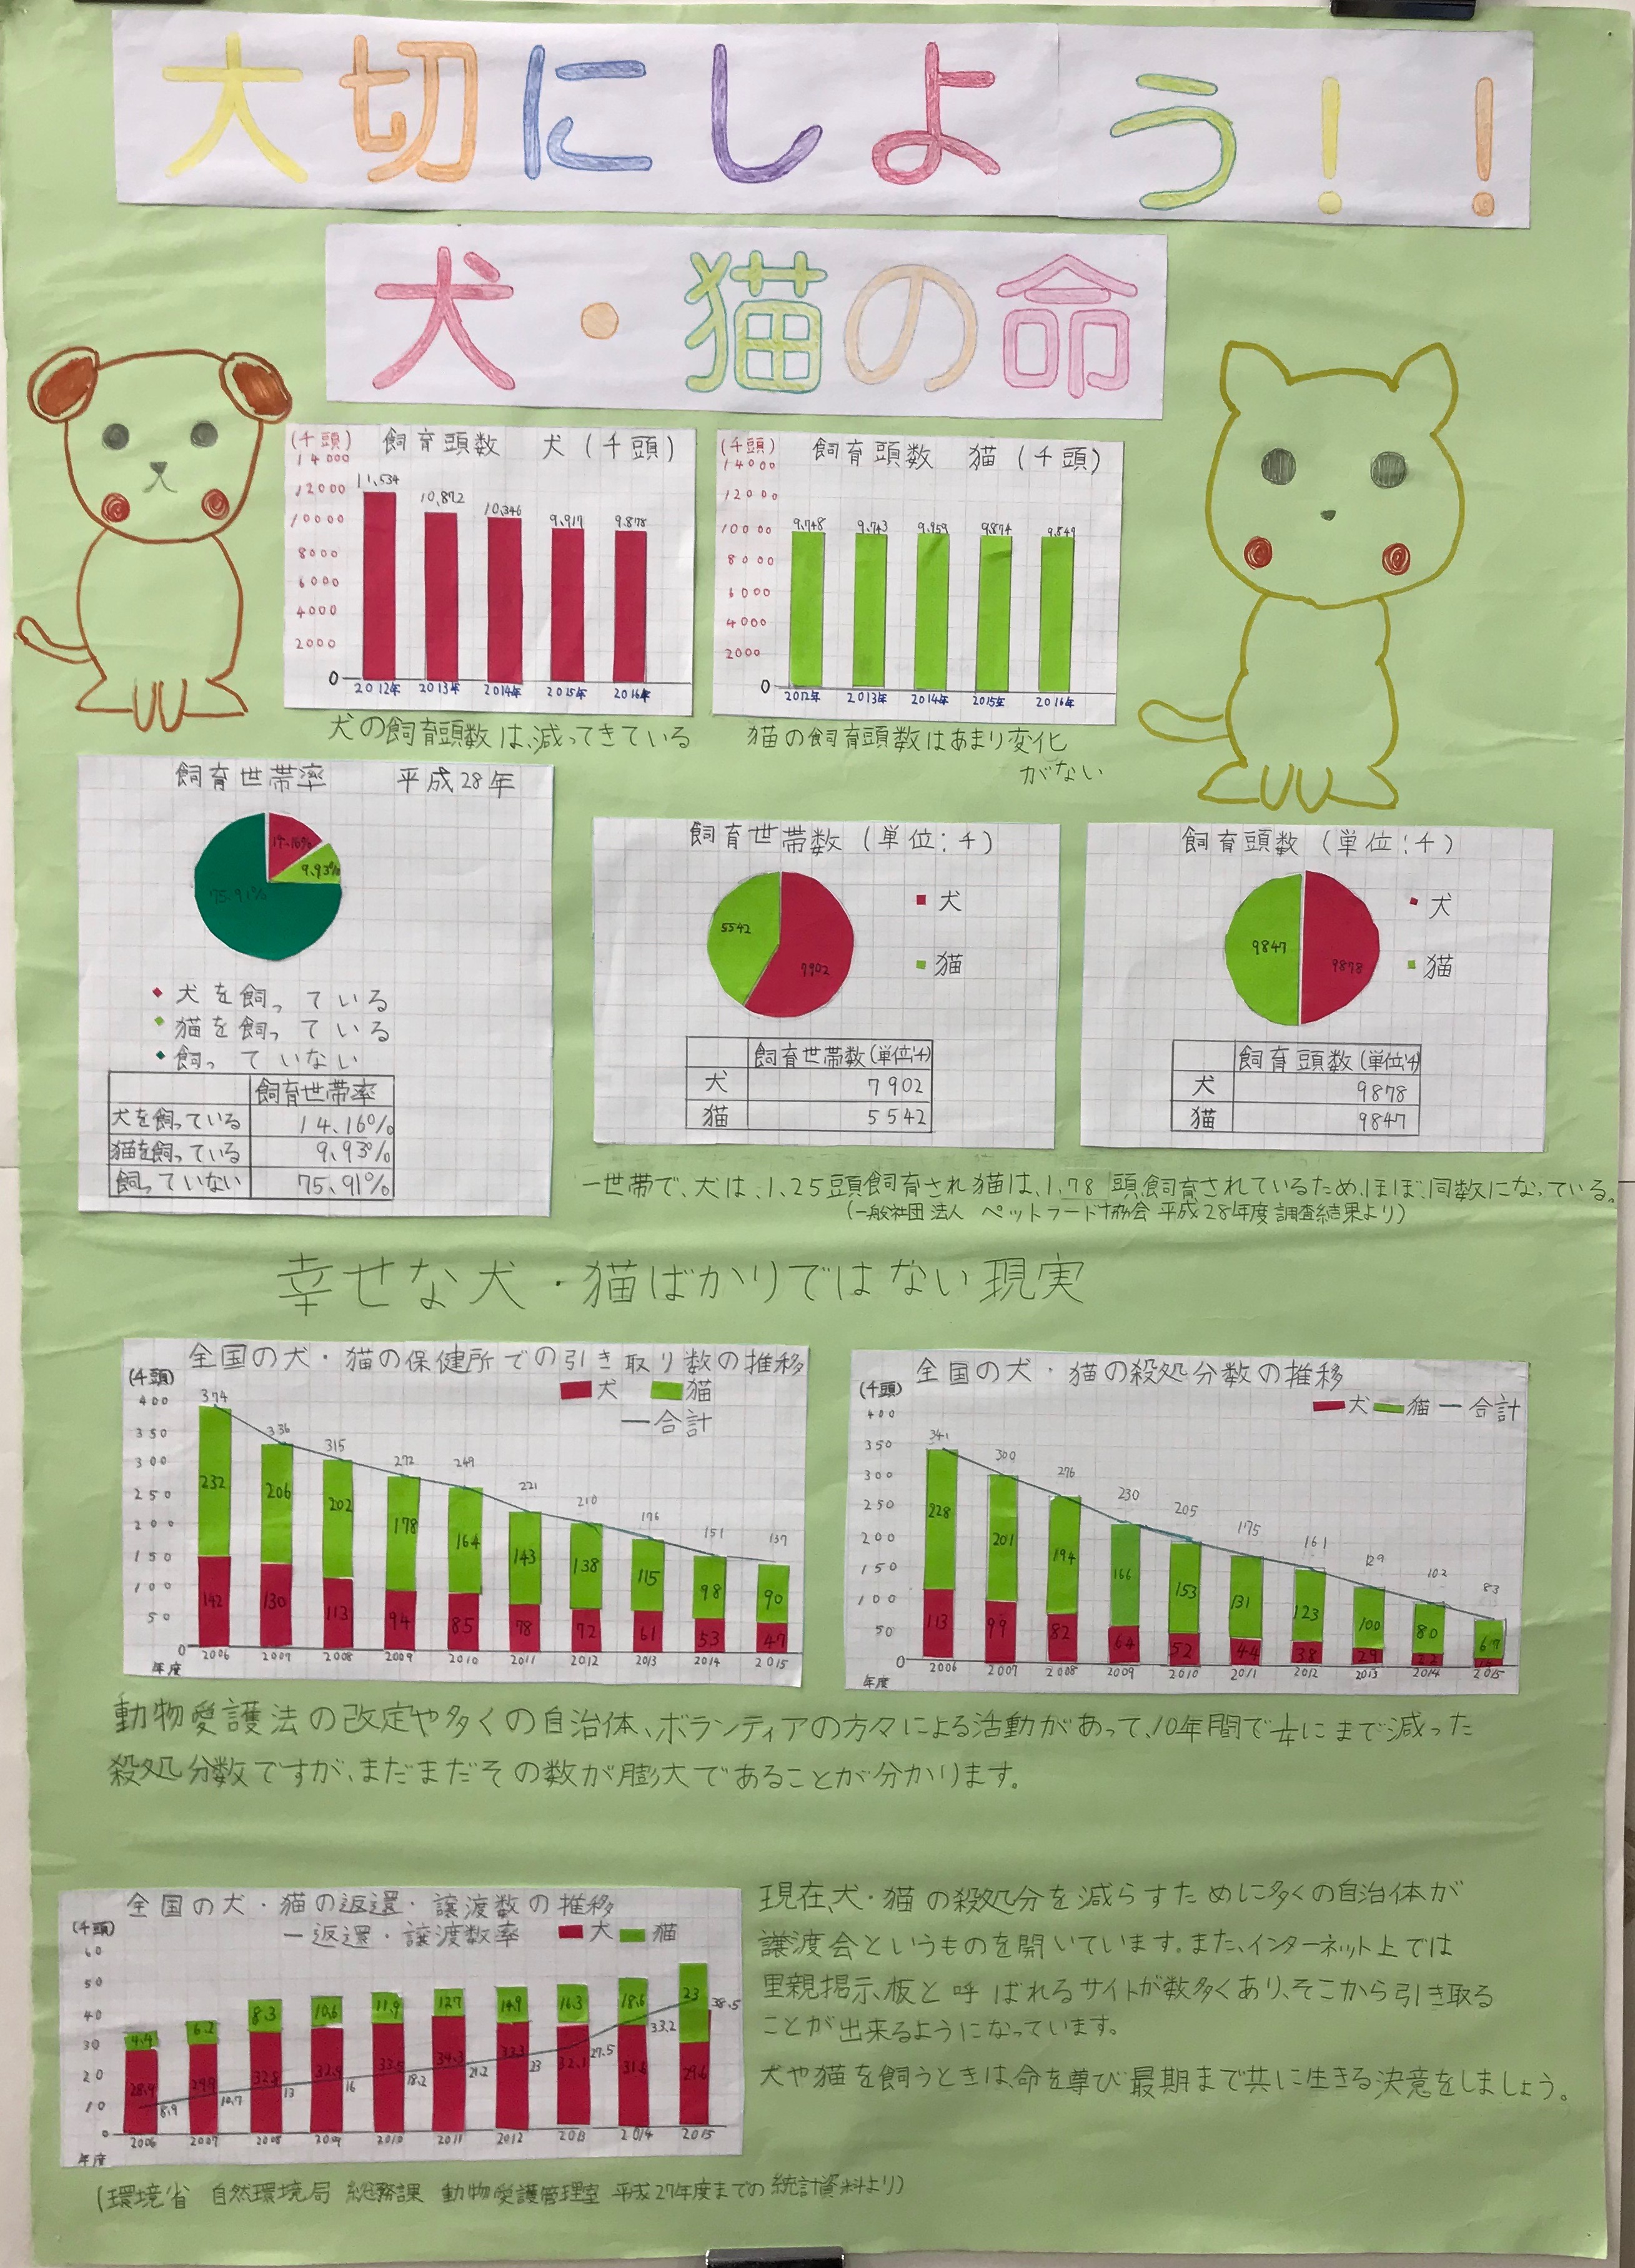 大切にしよう！！
犬・猫の命
(千頭) 飼育頭数 犬(千頭)
14000
12000
10000
8000
6000
4000
2000
0
11,534 10,872 10,346 9,917 9,878
2012年 2013年 2014年 2015年 2016年
犬の飼育頭数は、減ってきている
(千頭) 飼育頭数 猫(千頭)
14000
12000
10000
8000
6000
4000
2000
0
9,748 9,743 9,959 9,874 9,847
2012年 2013年 2014年 2015年 2016年
猫の飼育頭数はあまり変化
がない
飼育世帯率 平成28年
14.16%
9.93%
75.91%
犬を飼っている
猫を飼っている
飼っていない
飼育世帯率
犬を飼っている 14.16%
猫を飼っている 9.93%
飼っていない 75.91%
飼育世帯数(単位:千)
5542 7902
犬
猫
飼育世帯数(単位:千)
犬 7902
猫 5542
飼育頭数(単位:千)
9847 9878
犬
猫
飼育頭数(単位:千)
犬 9878
猫 9847
一世帯で、犬は、1.25頭飼育され猫は、1.78頭飼育されているため、ほぼ、同数になっている。
(一般社団法人 ペットフード協会 平成28年度調査結果より)
幸せな犬・猫ばかりではない現実
全国の犬・猫の保健所での引き取り数の推移
(千頭) 犬 猫
一合計
400
350
300
250
200
150
100
50
0
374 336 315 272 249 221 210 176 151 137
232 206 202 178 164 143 138 115 98 90
142 130 113 94 85 78 72 61 53 47
2006 2007 2008 2009 2010 2011 2012 2013 2014 2015
年度
全国の犬・猫の殺処分数の推移
(千頭) 犬 猫 一合計
400
350
300
250
200
150
100
50
0
341 300 276 230 205 175 161 129 102 83
228 201 194 166 153 131 123 100 80 67
113 99 82 64 52 44 38 29 22
2006 2007 2008 2009 2010 2011 2012 2013 2014 2015
年度
動物愛護法の改定や多くの自治体、ボランティアの方々による活動があって、10年間で1/4にまで減った
殺処分数ですが、まだまだその数が膨大であることが分かります。
全国の犬・猫の返還・譲渡数の推移
(千頭) 一返還・譲渡数率 犬 猫
60
50
40
30
20
10
0
4.4 6.2 8.3 10.6 11.9 12.7 14.9 16.3 18.6 23
28.9 29.9 32.8 32.9 33.5 34.3 33.3 32.1 31.6 29.6
8.9 10.7 13 16 18.2 21.2 23 27.5 33.2 38.5
2006 2007 2008 2009 2010 2011 2012 2013 2014 2015
年度
(環境省 自然環境局 総務課 動物愛護管理室 平成27年度までの統計資料より)
現在、犬・猫の殺処分を減らすために多くの自治体が
譲渡会というものを開いています。また、インターネット上では
里親掲示板と呼ばれるサイトが数多くあり、そこから引き取る
ことが出来るようになっています。
犬や猫を飼うときは、命を尊び最期まで共に生きる決意をしましょう。